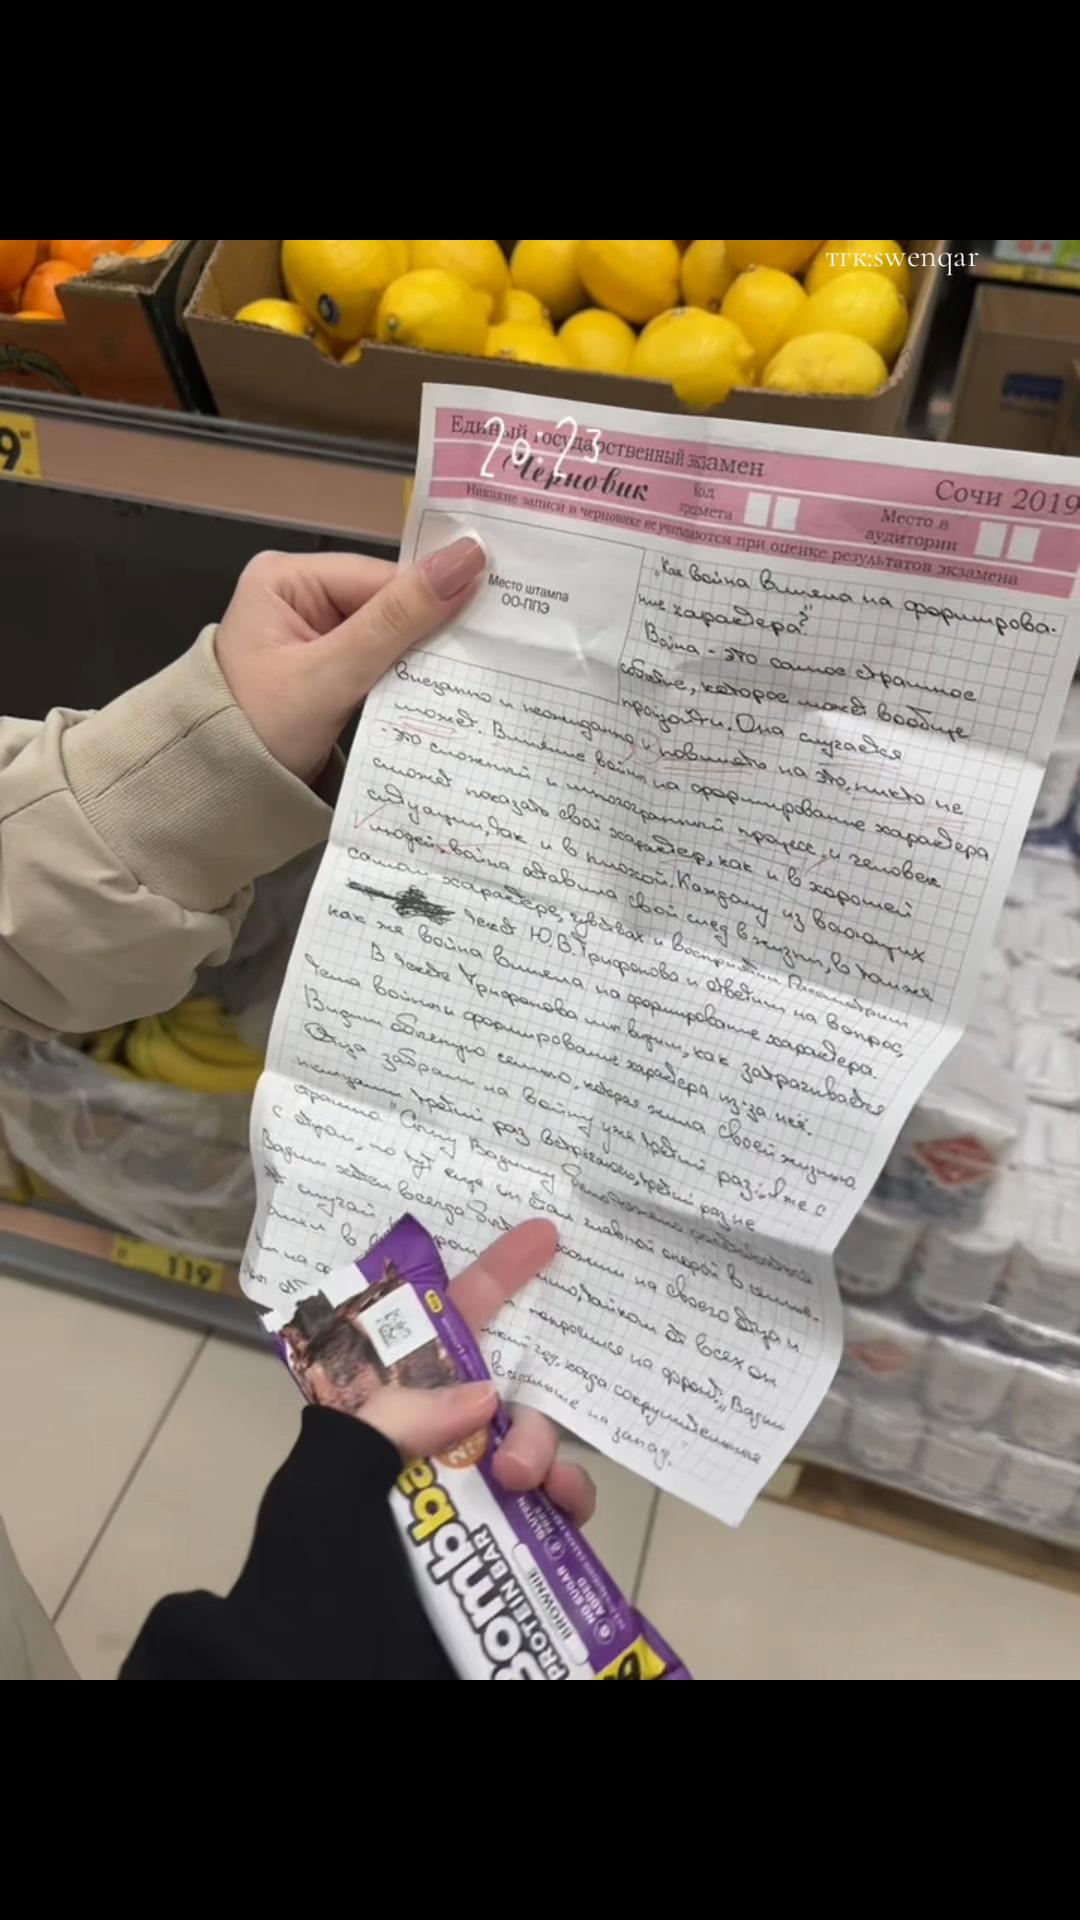 тгк:swenqar
20:23
Единый государственный экзамен
Черновик
Код предмета
Сочи 2019
Место в аудитории
Никакие записи в черновике не учитываются при оценке результатов экзамена
Место штампа
ОО-ППЭ
"Как война влияла на формирова-
ние характера?"
Война - это самое страшное
событие, которое может вообще
произойти. Она случается
внезапно и неожиданно и повлиять на это, никто не
может. Влияние войны на формирование характера
- это сложный и многогранный процесс, и человек
сможет показать свой характер, как и в хорошей
ситуации, так и в плохой. Каждому из воюющих
людей, война оставила свой след в жизни, в том же
самом характере, чувствах и восприятии. Рассмотрим
текст Ю.В.Трифонова и ответим на вопрос,
как же война влияла на формирование характера.
В тексте Трифонова мы видим, как затрагивается
тема войны и формирование характера из-за неё.
Видим обычную семью, которая жила своей жизнью.
Отца забрали на войну уже третий раз: „Уже с
немцами третий раз встречаюсь, третий раз не
страшно" Сыну Вадиму
с отцом, но тут еще он стал главной опорой в семье.
Вадим хотел всегда быть похожим на своего отца и
случай,
тайком от всех он
в
попросился на фронт: „Вадим
год, когда сокрушительная
на запад."
9
119
Bombbar
PROTEIN BAR
BROWNIE
NO SUGAR ADDED
GLUTEN FREE